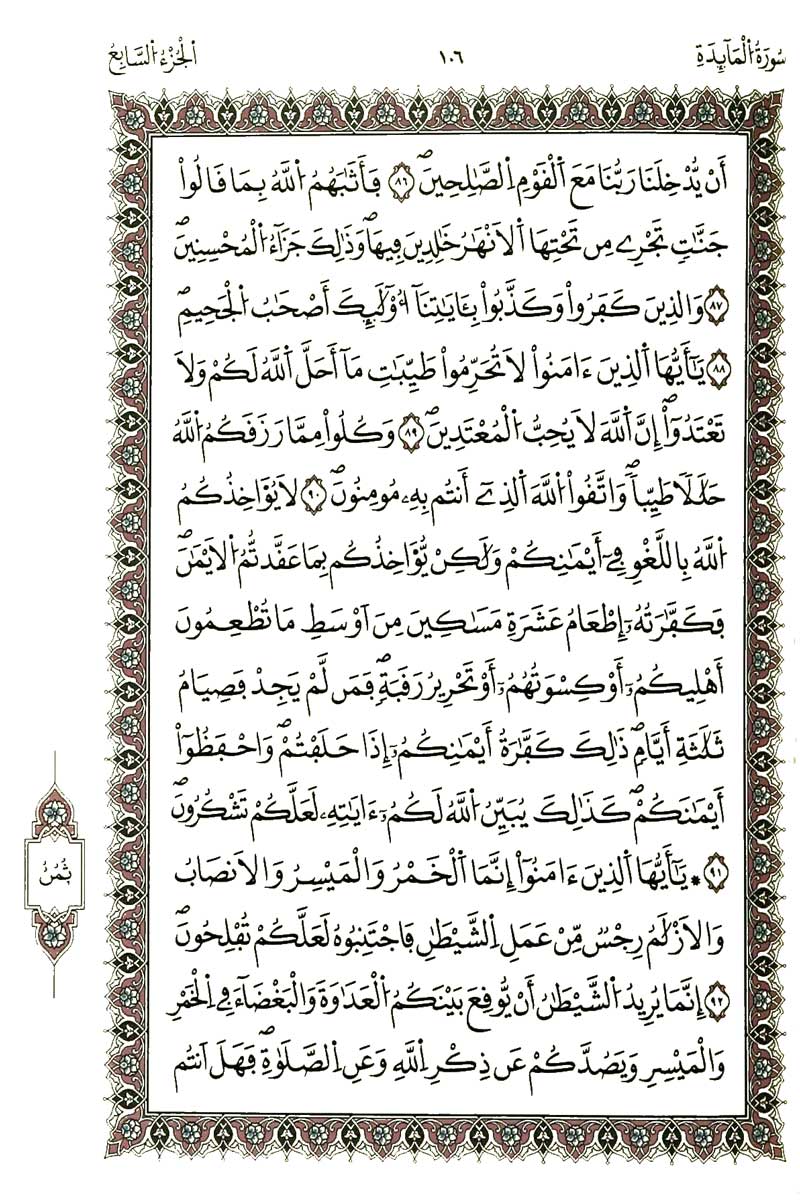 سُورَةُ اُلْمَآئِدَةِ
١٠٦
اَلْجُزْءُ اُلسَّابِعُ
أَنْ يُّدْخِلَنَا رَبُّنَا مَعَ اَلْقَوْمِ اِلصَّٰلِحِينَۖ ٨٦ فَأَثَٰبَهُمُ اُللَّهُ بِمَا قَالُواْ
جَنَّٰتٖ تَجْرِے مِن تَحْتِهَا اَلْأَنْهَٰرُ خَٰلِدِينَ فِيهَاۖ وَذَٰلِكَ جَزَآءُ اُلْمُحْسِنِينَۖ
٨٧ وَالذِينَ كَفَرُواْ وَكَذَّبُواْ بِـَٔايَٰتِنَآ أُوْلَٰٓئِكَ أَصْحَٰبُ اُلْجَحِيمِۖ
٨٨ يَٰٓأَيُّهَا اَلذِينَ ءَامَنُواْ لَا تُحَرِّمُواْ طَيِّبَٰتِ مَآ أَحَلَّ اَللَّهُ لَكُمْ وَلَا
تَعْتَدُوٓاْۖ إِنَّ اَللَّهَ لَا يُحِبُّ اُلْمُعْتَدِينَۖ ٨٩ وَكُلُواْ مِمَّا رَزَقَكُمُ اُللَّهُ
حَلَٰلاٗ طَيِّباٗۖ وَاتَّقُواْ اُللَّهَ اَلذِےٓ أَنتُم بِهِۦ مُومِنُونَۖ ٩٠ لَا يُؤَاخِذُكُمُ
اُللَّهُ بِاللَّغْوِ فِےٓ أَيْمَٰنِكُمْ وَلَٰكِنْ يُّؤَاخِذُكُم بِمَا عَقَّدتُّمُ اُلْأَيْمَٰنَۖ
فَكَفَّٰرَتُهُۥٓ إِطْعَامُ عَشَرَةِ مَسَٰكِينَ مِنَ اَوْسَطِ مَا تُطْعِمُونَ
أَهْلِيكُمُۥٓ أَوْ كِسْوَتُهُمُۥٓ أَوْ تَحْرِيرُ رَقَبَةٖۖ فَمَن لَّمْ يَجِدْ فَصِيَامُ
ثَلَٰثَةِ أَيَّامٖۖ ذَٰلِكَ كَفَّٰرَةُ أَيْمَٰنِكُمُۥٓ إِذَا حَلَفْتُمْۖ وَاحْفَظُوٓاْ
أَيْمَٰنَكُمْۖ كَذَٰلِكَ يُبَيِّنُ اُللَّهُ لَكُمُۥٓ ءَايَٰتِهِۦ لَعَلَّكُمْ تَشْكُرُونَۖ
٩١ * يَٰٓأَيُّهَا اَلذِينَ ءَامَنُوٓاْ إِنَّمَا اَلْخَمْرُ وَالْمَيْسِرُ وَالْأَنصَابُ
وَالْأَزْلَٰمُ رِجْسٞ مِّنْ عَمَلِ اِلشَّيْطَٰنِ فَاجْتَنِبُوهُ لَعَلَّكُمْ تُفْلِحُونَۖ
٩٢ إِنَّمَا يُرِيدُ اُلشَّيْطَٰنُ أَنْ يُّوقِعَ بَيْنَكُمُ اُلْعَدَٰوَةَ وَالْبَغْضَآءَ فِے اِلْخَمْرِ
وَالْمَيْسِرِ وَيَصُدَّكُمْ عَن ذِكْرِ اِللَّهِ وَعَنِ اِلصَّلَوٰةِۖ فَهَلَ اَنتُم
ثُمُنُ